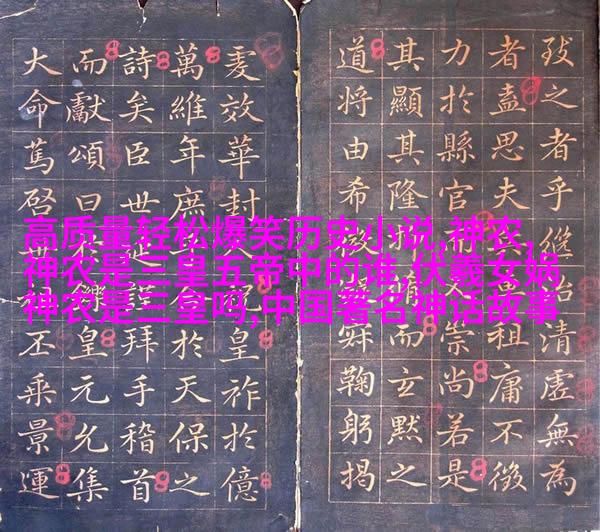 高质量轻松爆笑历史小说,神农,
神农是三皇五帝中的谁,伏羲女娲
神农是三皇吗,中国著名神话故事
之者乎繼清虛無為
者盍思夫祖庸不徵
力於縣官崇尚若是
其顯其隆而玄默之
道將由希鞠躬揭
效華封皇祚於億
萬維年庶於天保之
詩矣臣世謹拜手稽首
而獻頌曰皇元允集
大命篤啓丕乘景運